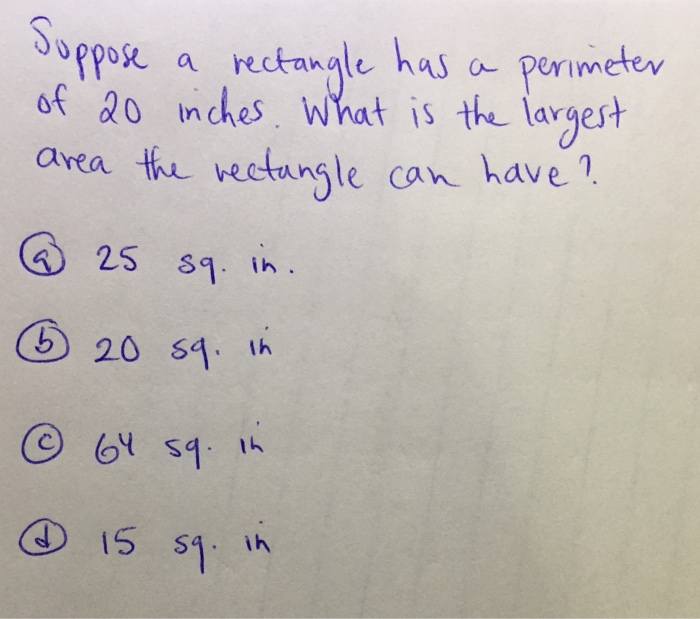 Suppose a rectangle has a perimeter
of 20 inches. What is the largest
area the rectangle can have?
a 25 sq. in.
b 20 sq. in
c 64 sq. in
d 15 sq. in